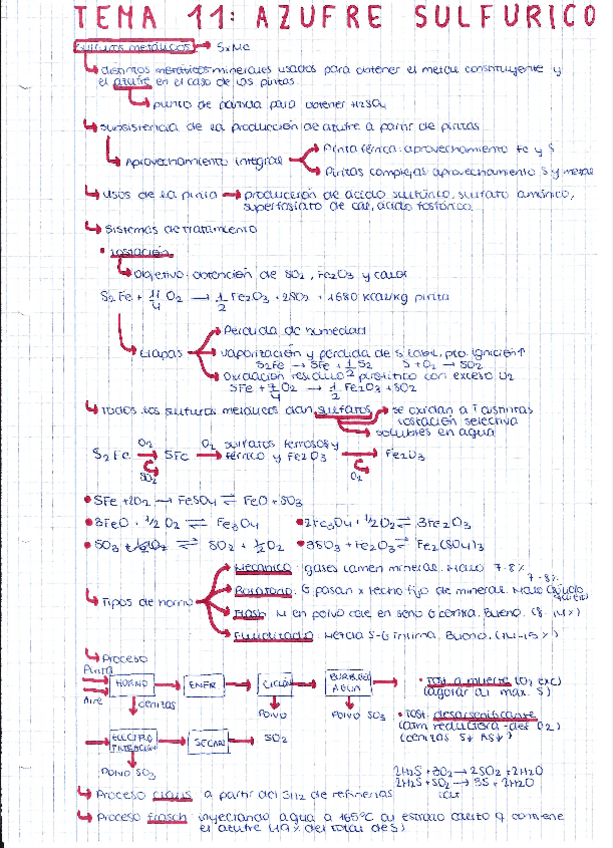 TEMA 11: AZUFRE SULFURICO
Sulfuros metálicos → SxMe
distintos metálicos minerales usados para obtener el metal constituyente y
el azufre en el caso de las piritas
punto de partida para obtener H2SO4
subsistencia de la producción de azufre a partir de piritas
Aprovechamiento integral
Pirita férrica: aprovechamiento Fe y S
Piritas complejas: aprovechamiento S y metal
usos de la pirita → producción de ácido sulfúrico, sulfato amónico,
superfosfato de cal, ácido fosfórico
Sistemas de tratamiento
• Tostación
Objetivo: obtención de SO2, Fe2O3 y calor
S2Fe + 11/4 O2 → 1/2 Fe2O3 + 2SO2 + 1680 kcal/kg pirita
Etapas
Perdida de humedad
vaporización y pérdida de S labil, pto. ignición↑
S2Fe → SFe + 1/2 S2 S + O2 → SO2
Oxidación residuo pirrotítico con exceso O2
SFe + 7/4 O2 → 1/2 Fe2O3 + SO2
Todos los sulfuros metálicos dan sulfatos
se oxidan a T distintas
tostación selectiva
solubles en agua
S2Fe O2 → SO2 SFe O2 → sulfatos ferrosos y
férrico y Fe2O3 → O2 Fe2O3
• SFe + 2O2 → FeSO4 ⇌ FeO + SO3
• 3FeO + 1/2 O2 ⇌ Fe3O4 • 2Fe3O4 + 1/2 O2 ⇌ 3Fe2O3
• SO3 ⇌ SO2 + 1/2 O2 • 3SO3 + Fe2O3 ⇌ Fe2(SO4)3
Tipos de horno
Mecánico: gases lamen mineral. Malo 7-8%
7-8%
G pasan x lecho fijo de mineral. Malo
Flash: M en polvo cae en seno G contra. Bueno. (8-14%)
Fluidizado: Mezcla S-G íntima. Bueno. (14-15%)
Proceso
Pirita
Aire
HORNO
cenizas
ENFR
CICLÓN
Polvo
BURBUJEO
AGUA
Polvo SO3
• Tost. a muerte (O2 exc)
(agotar al max. S)
• Tost. desarsenificante
(atm reductora -def O2)
(cenizas S↓ AS↓)
ELECTRO
Polvo SO3
SECAR
SO2
2H2S + 3O2 → 2SO2 + 2H2O
2H2S + SO2 → 3S + 2H2O
Proceso claus a partir del SH2 de refinerías
Proceso Frasch: inyectando agua a 165ºC al estrato calizo q contiene
el azufre (49% del total de S)